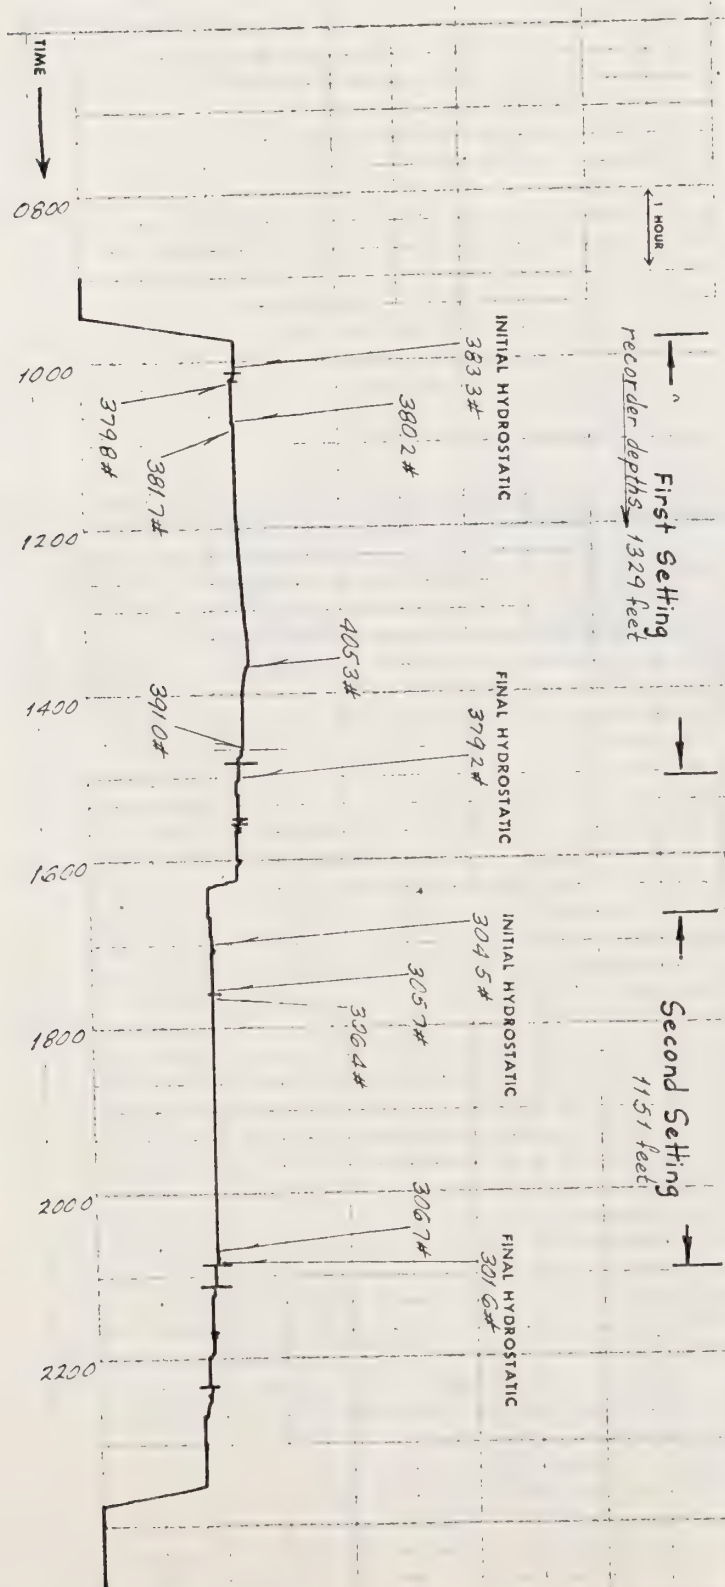 TIME
0800
1 HOUR
1000
1200
1400
1600
1800
2000
2200
First Setting
recorder depths 1329 feet
INITIAL HYDROSTATIC
383.3#
380.2#
381.7#
379.8#
405.3#
391.0#
FINAL HYDROSTATIC
379.2#
Second Setting
1151 feet
INITIAL HYDROSTATIC
304.5#
305.7#
306.7#
FINAL HYDROSTATIC
301.6#